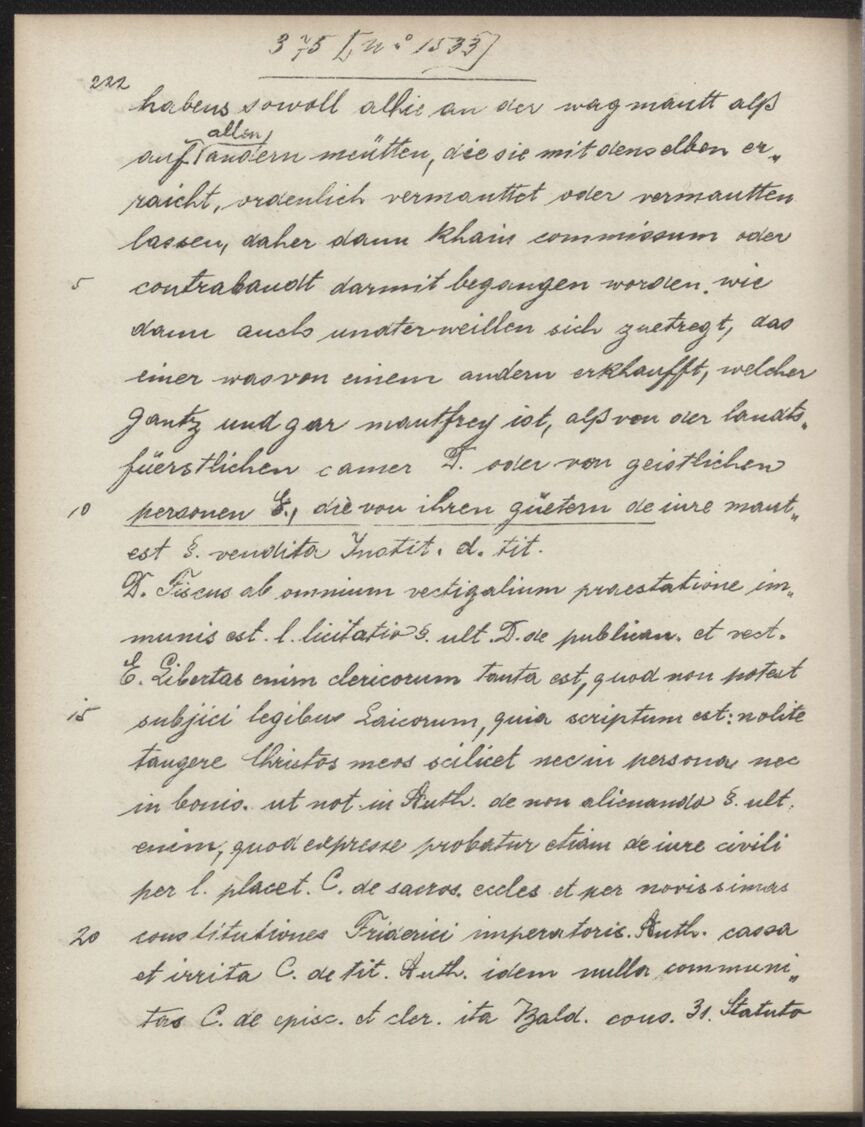 375 [n° 1533]
222
habens sowoll alhie an der wagmautt alß
allen
auf andern meütten, die sie mit denselben er„
raicht, ordenlich vermauttet oder vermautten
lassen, daher dann khain commissum oder
5 contrabandt darmit begangen worden. wie
dann auch undterweillen sich zuetregt, das
einer was von einem andern erkhaufft, welcher
gantz und gar mautfrey ist, alß von der landts„
füerstlichen camer D. oder von geistlichen
10 personen E., die von ihren güetern de iure maut„
est §. vendita Instit. d. tit.
D. Fiscus ab omnium vectigalium praestatione im„
munis est. l. licitatio §. ult. D. de publican. et vect.
E. Libertas enim clericorum tanta est, quod non potest
15 subjici legibus Laicorum, quia scriptum est: nolite
tangere Christos meos scilicet nec in persona nec
in bonis. ut not. in Auth. de non alienando §. ult.
enim, quod expresse probatur etiam de iure civili
per l. placet. C. de sacros. eccles et per novissimas
20 constitutiones Friderici imperatoris. Auth. cassa
et irrita C. de tit. Auth. idem nulla communi„
tas C. de episc. et cler. ita Bald. cons. 31. Statuto